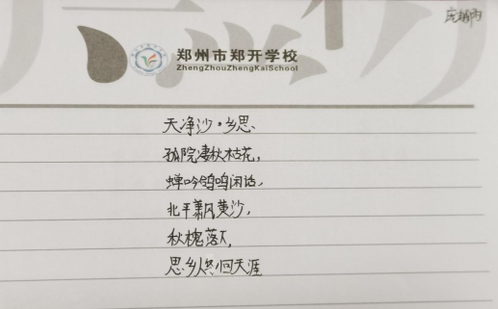 郑州市郑开学校
ZhengZhouZhengKaiSchool
天净沙·乡思
孤院凄秋枯花，
蝉吟鸽鸣闲话，
北平萧风黄沙，
秋槐落下，
思乡人终回天涯